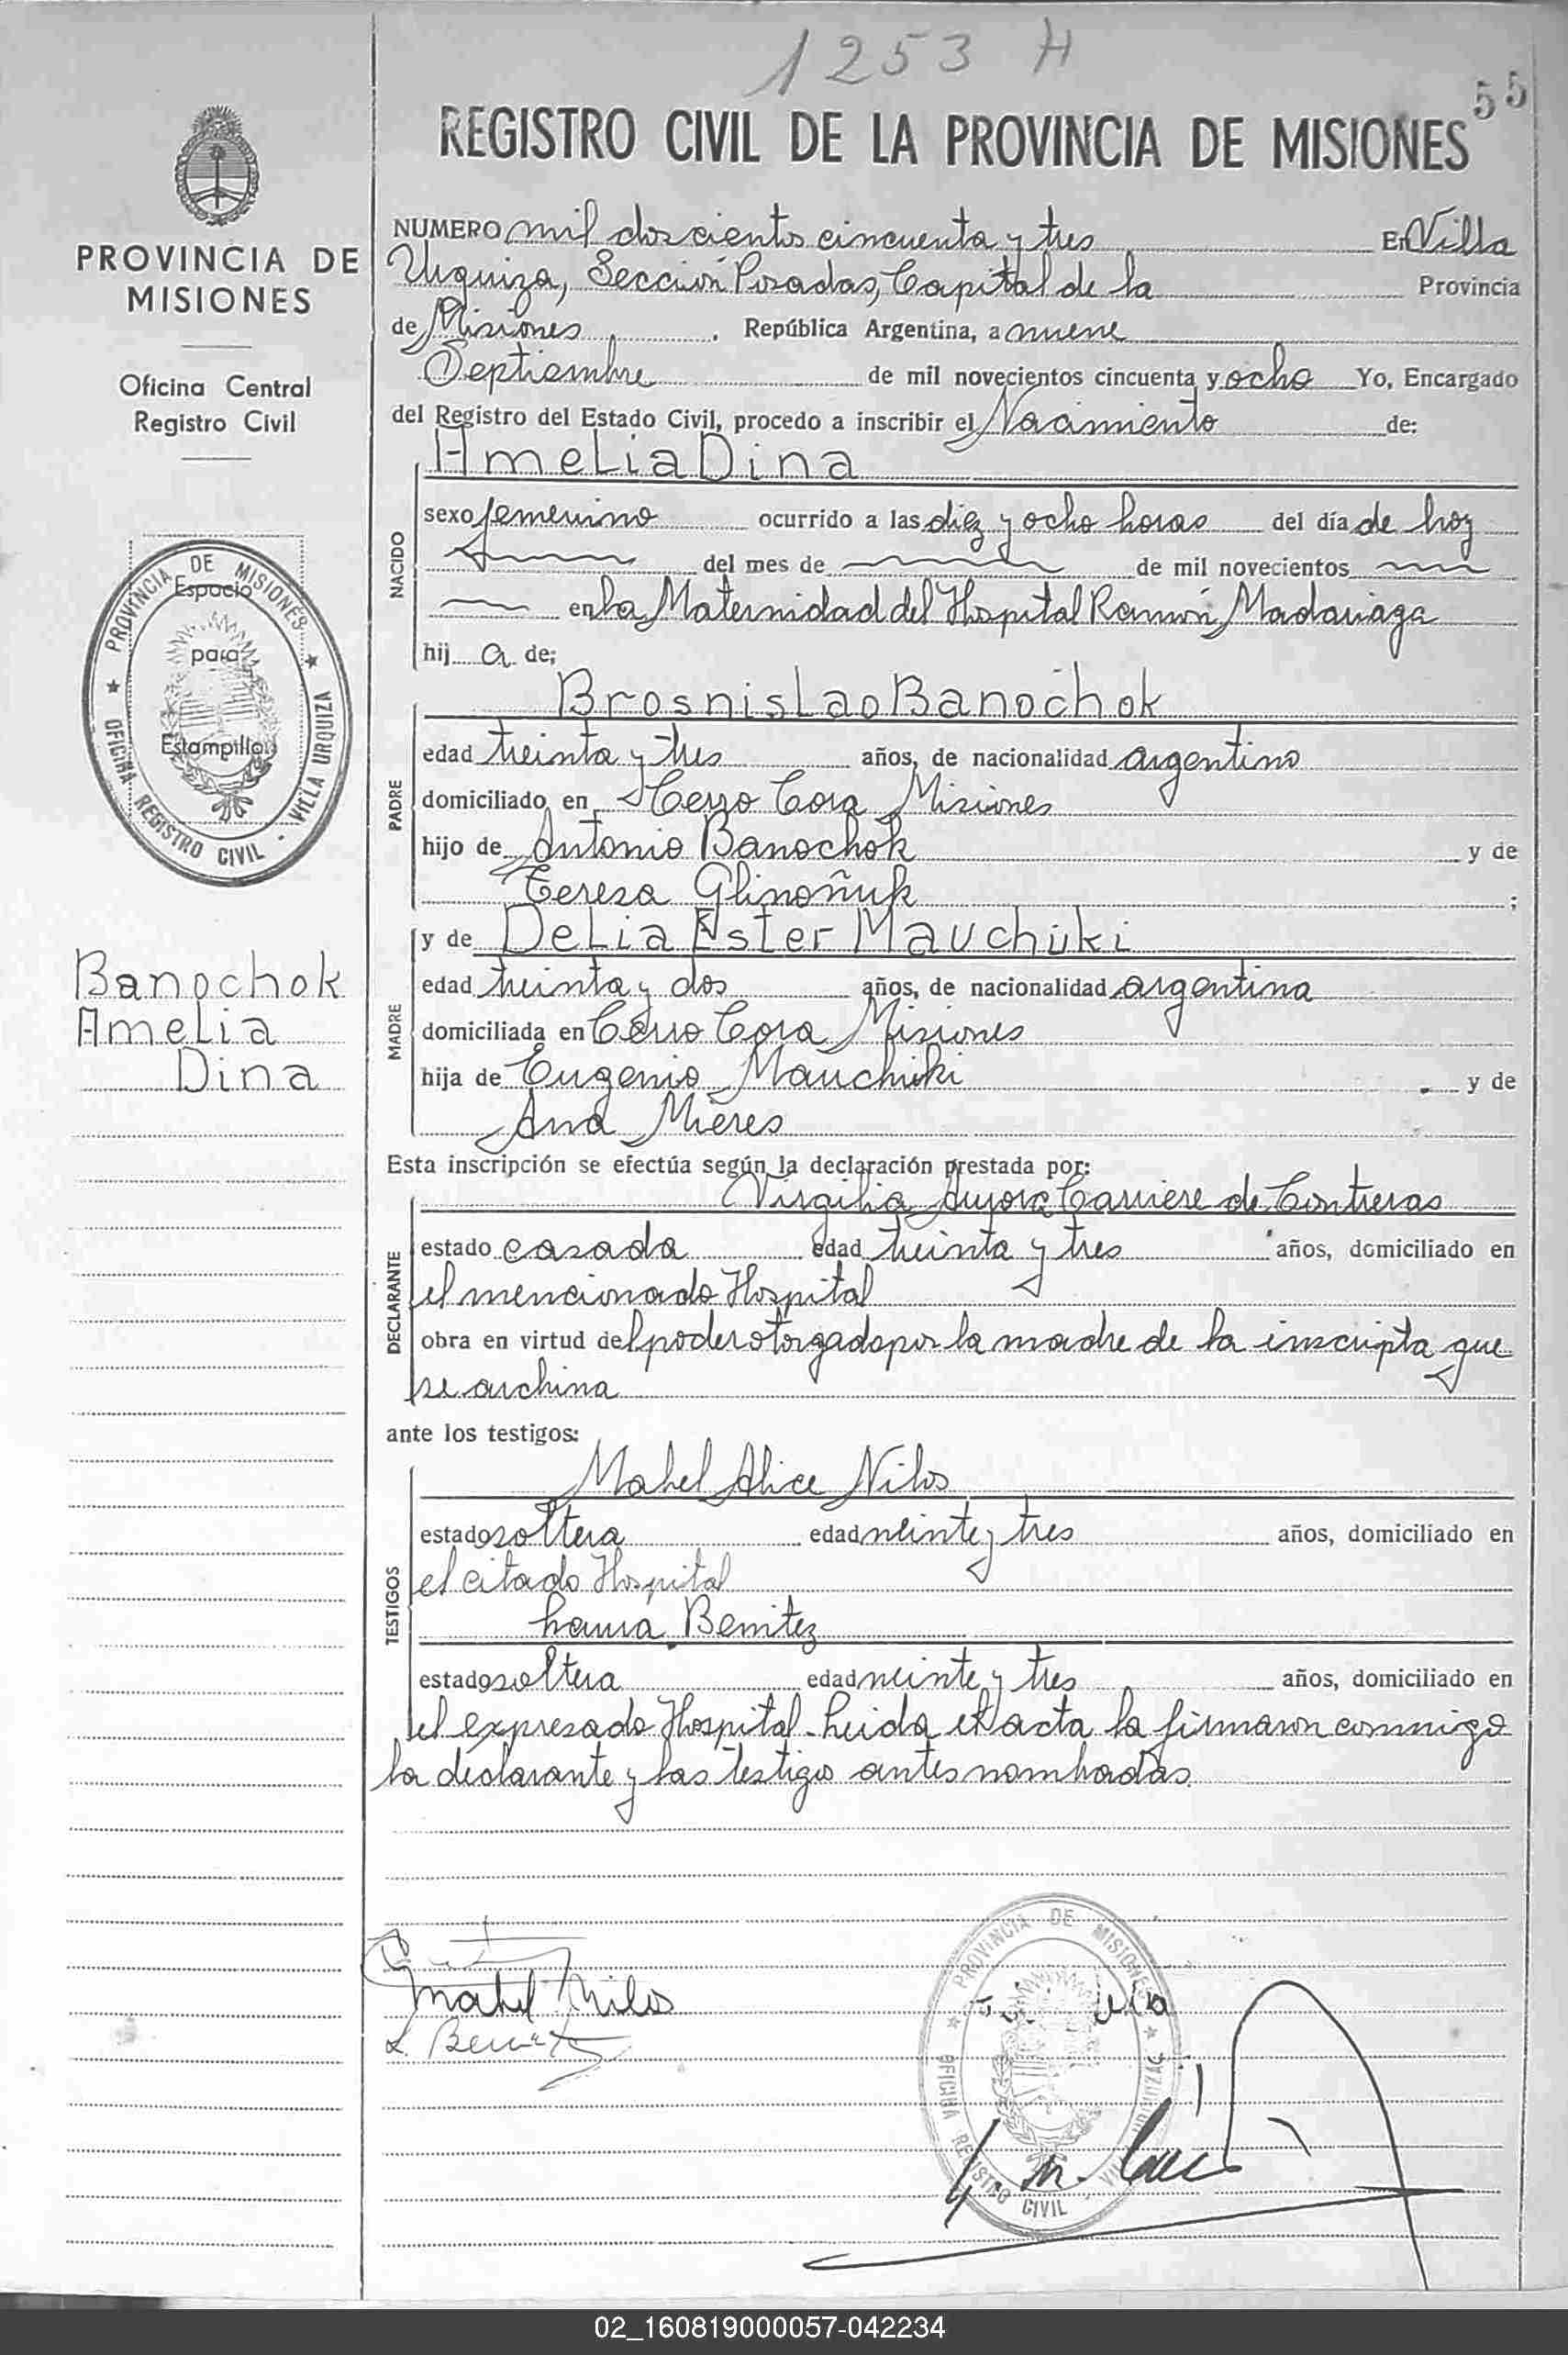 1253 H
55
REGISTRO CIVIL DE LA PROVINCIA DE MISIONES
PROVINCIA DE
MISIONES
Oficina Central
Registro Civil
PROVINCIA DE MISIONES
OFICINA REGISTRO CIVIL - VILLA URQUIZA
Espacio
para
Estampilla
Banochok
Amelia
Dina
NUMERO mil doscientos cincuenta y tres En Villa
Urquiza, Sección Posadas, Capital de la Provincia
de Misiones, República Argentina, a nueve
Septiembre de mil novecientos cincuenta y ocho Yo, Encargado
del Registro del Estado Civil, procedo a inscribir el Nacimiento de:
NACIDO
Amelia Dina
sexo femenino ocurrido a las diez y ocho horas del día de hoy
del mes de de mil novecientos
en la Maternidad del Hospital Ramón Madariaga
hij a de;
PADRE
Brosnislao Banochok
edad treinta y tres años, de nacionalidad argentino
domiciliado en Cerro Cora Misiones
hijo de Antonio Banochok y de
Teresa Glinoñuk ;
MADRE
y de Delia Ester Mauchuki
edad treinta y dos años, de nacionalidad argentina
domiciliada en Cerro Cora Misiones
hija de Eugenio Mauchuki y de
Ana Mieres
Esta inscripción se efectúa según la declaración prestada por:
DECLARANTE
Virgilia Aurora Carriere de Contreras
estado casada edad treinta y tres años, domiciliado en
el mencionado Hospital
obra en virtud del poder otorgado por la madre de la inscripta que
se archiva
ante los testigos:
TESTIGOS
Mabel Alice Nilos
estado soltera edad veinte y tres años, domiciliado en
el citado Hospital
Laura Benitez
estado soltera edad veinte y tres años, domiciliado en
el expresado Hospital. Leida el acta la firmaron conmigo
la declarante y las testigos antes nombradas
Mabel Nilos
L. Benitez
PROVINCIA DE MISIONES
OFICINA REGISTRO CIVIL - VILLA URQUIZA
02_160819000057-042234